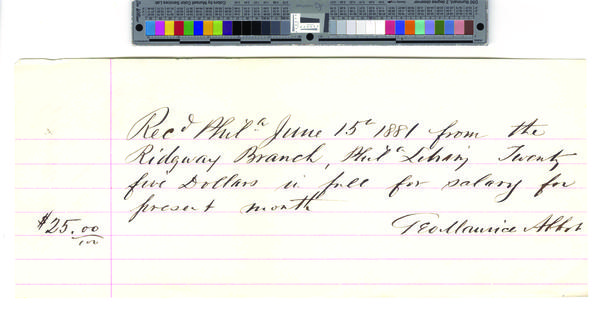 Recd Phila June 15th 1881 from the
Ridgway Branch, Phila Library Twenty
five Dollars in full for salary for
present month
$25.00/100 Geo Maurice Abbot